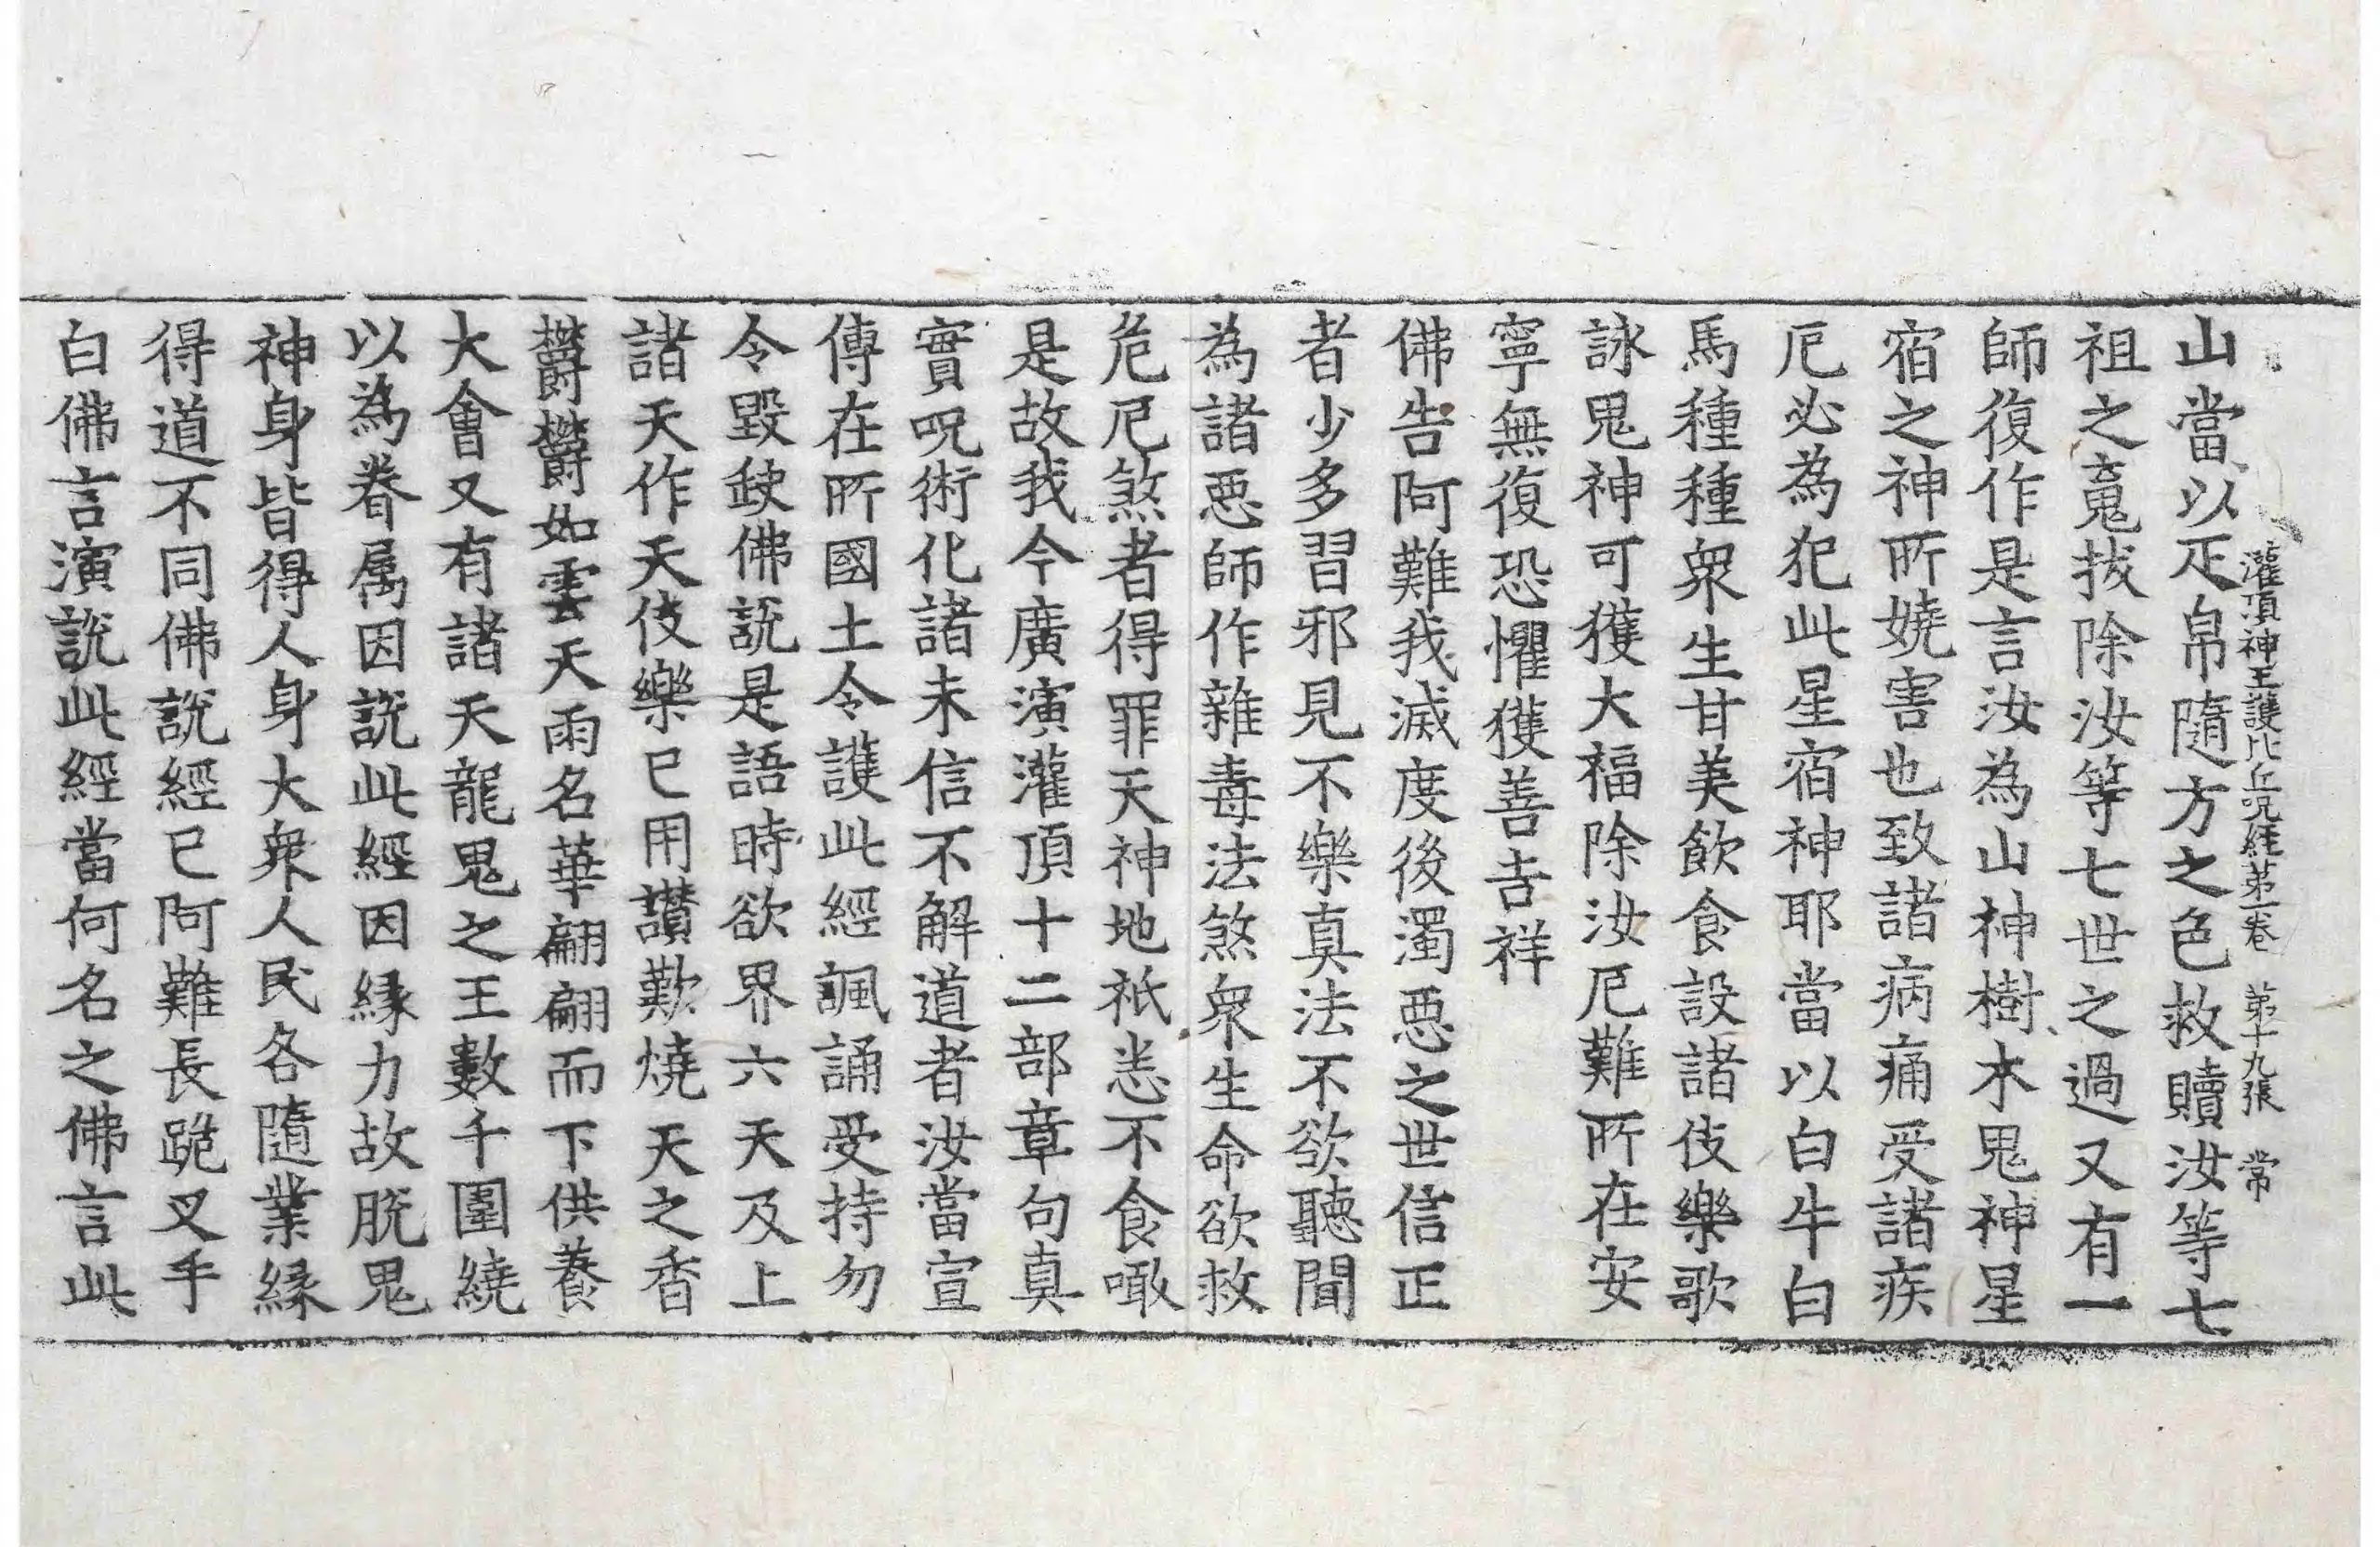 灌頂神王護比丘呪經第一卷　第十九張　常
山當以疋帛隨方之色救贖汝等七
祖之䰟拔除汝等七世之過又有一
師復作是言汝為山神樹木鬼神星
宿之神所嬈害也致諸病痛受諸疾
厄必為犯此星宿神耶當以白牛白
馬種種衆生甘美飲食設諸伎樂歌
詠鬼神可獲大福除汝厄難所在安
寧無復恐懼獲善吉祥
佛告阿難我滅度後濁惡之世信正
者少多習邪見不樂真法不欲聽聞
為諸惡師作雜毒法煞衆生命欲救
危厄煞者得罪天神地祇恙不食噉
是故我今廣演灌頂十二部章句真
實呪術化諸未信不解道者汝當宣
傳在所國土令護此經諷誦受持勿
令毀䥫佛説是語時欲界六天及上
諸天作天伎樂已用讃歎燒天之香
欝欝如雲天雨名華翩翩而下供養
大會又有諸天龍鬼之王數千圍繞
以為眷属因説此經因緣力故脫鬼
神身皆得人身大衆人民各隨業緣
得道不同佛説經已阿難長跪叉手
白佛言演説此經當何名之佛言此